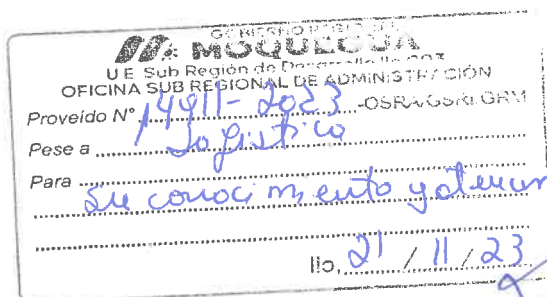 GOBIERNO REGIONAL
MOQUEGUA
U E Sub Región de Desarrollo Ilo
OFICINA SUB REGIONAL DE ADMINISTRACIÓN
Proveído N° 14911-2023 -OSRA/GSRI.GRM
Pese a Logistico
Para
Su conocimiento y atencion
Ilo, 21 / 11 / 23